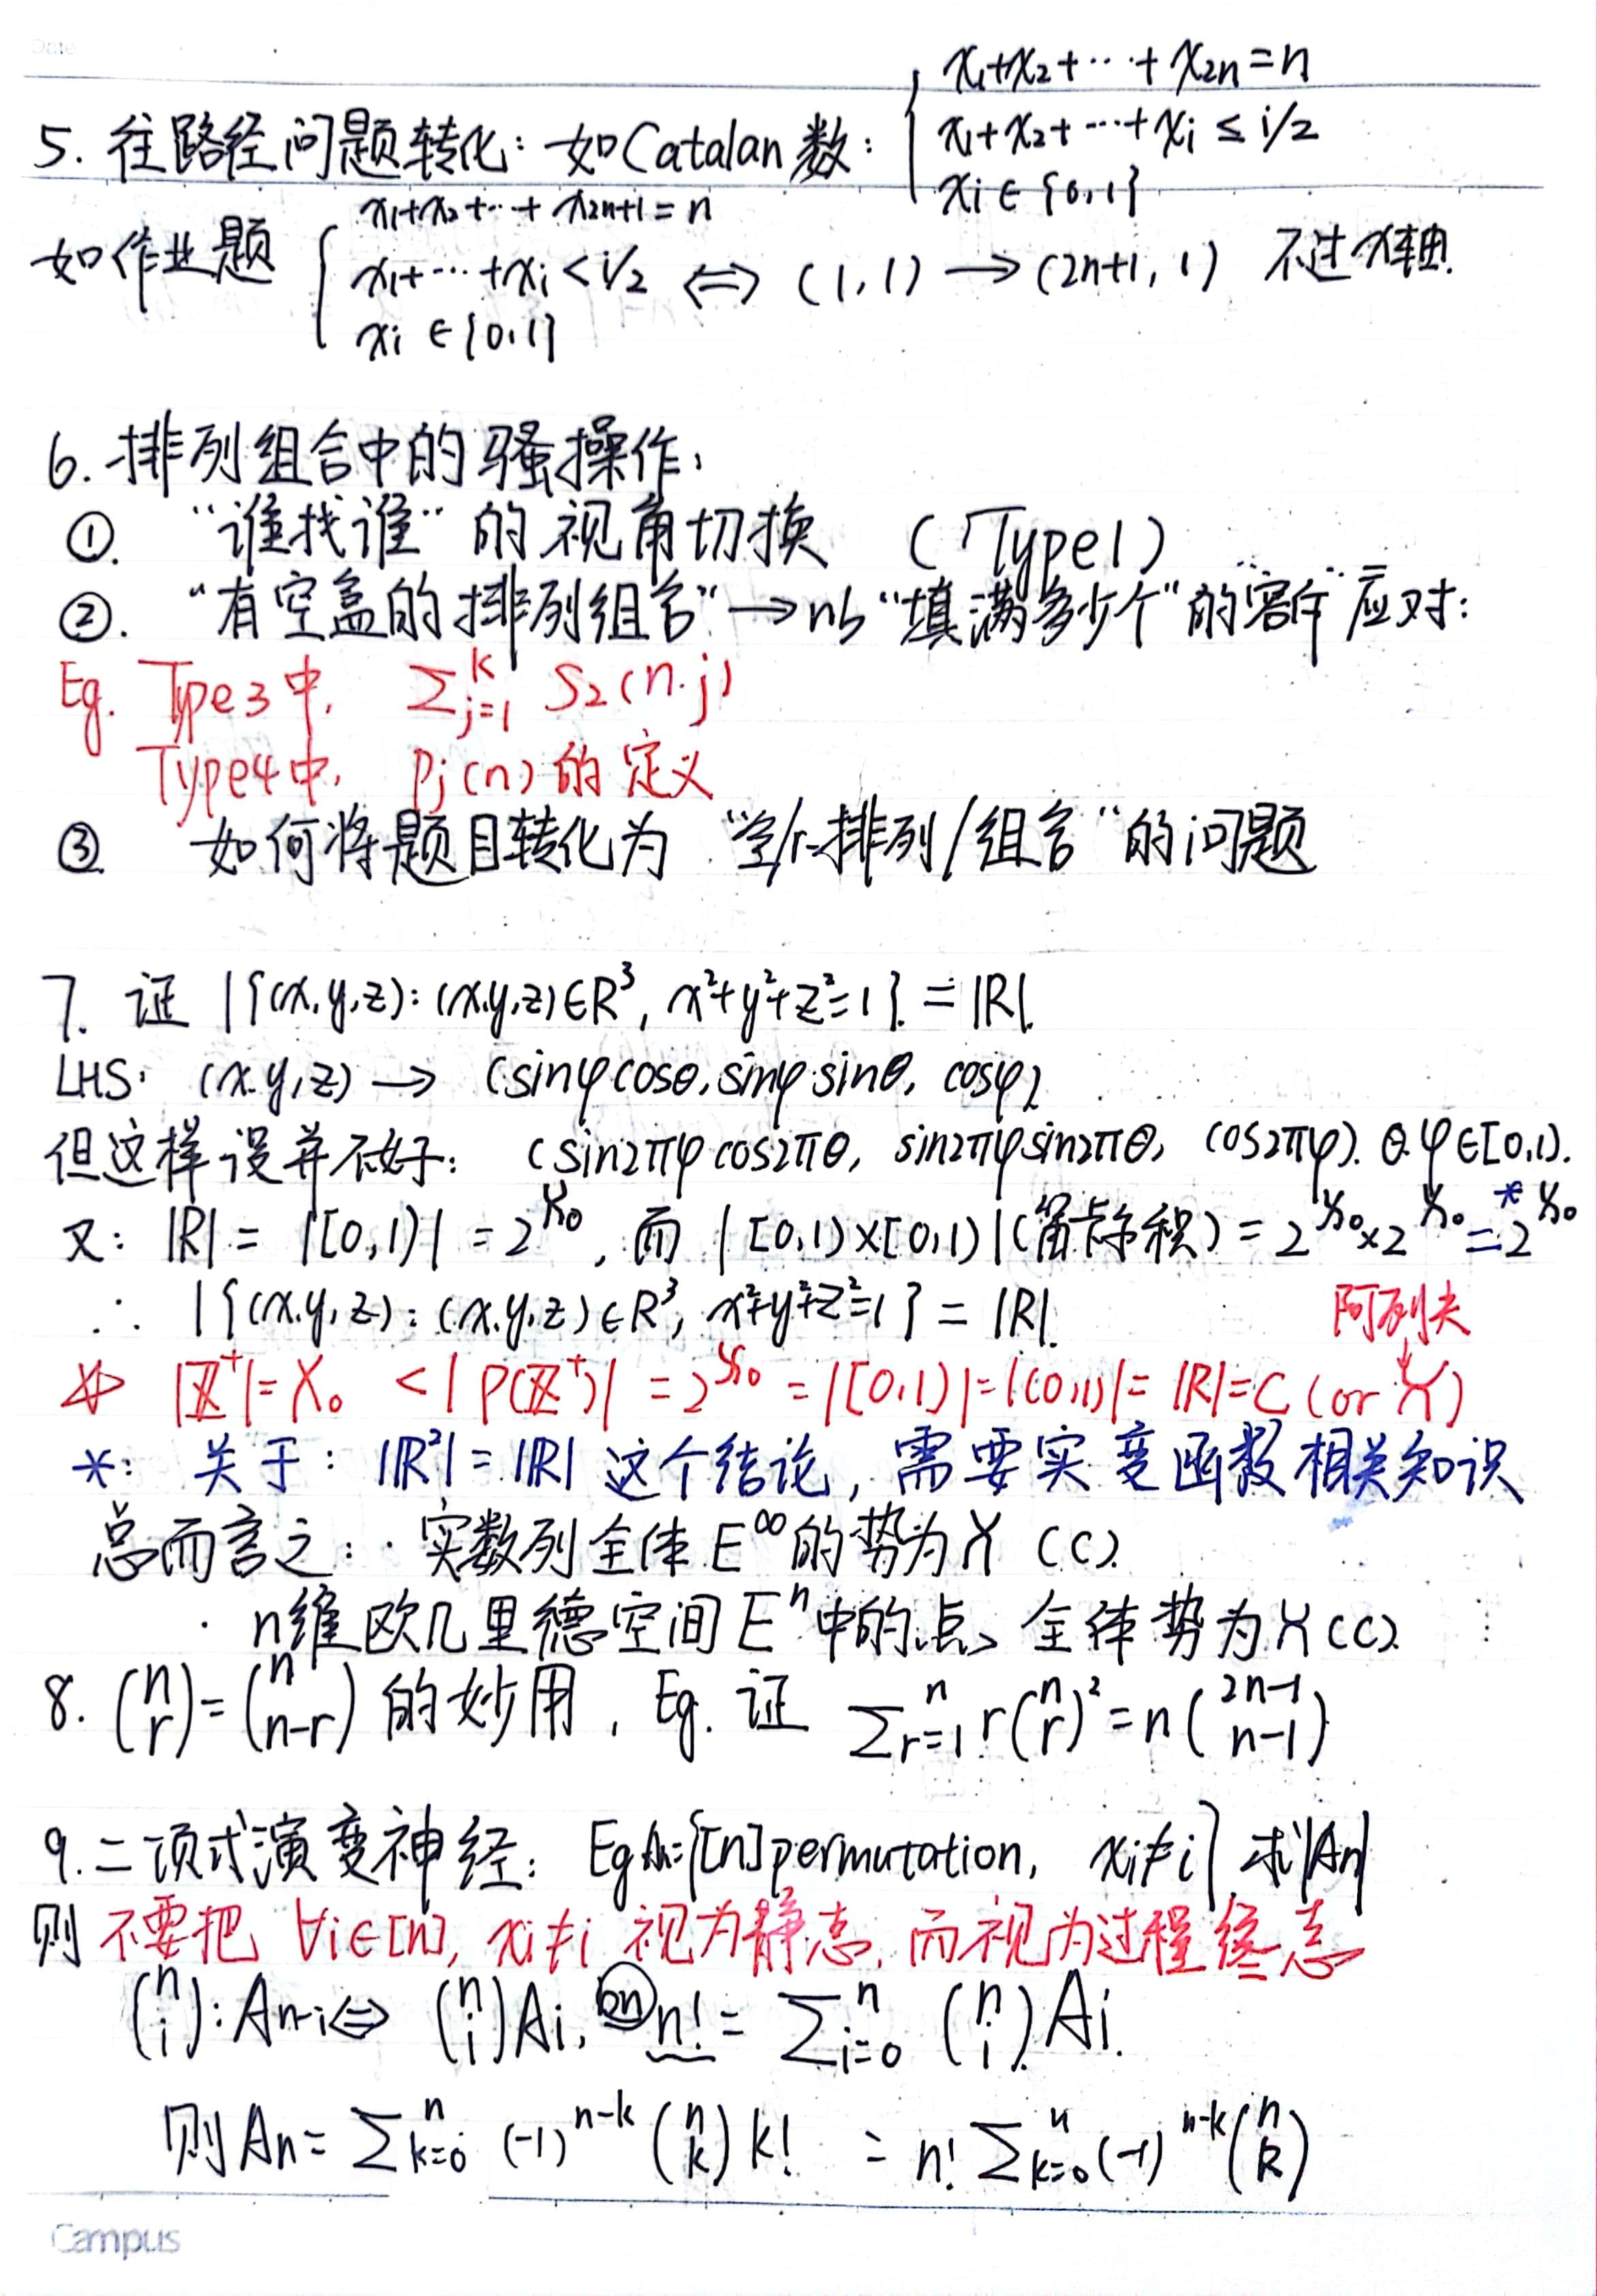 Date
5. 往路径问题转化: 如Catalan数: { x₁+x₂+⋯+x₂ₙ=n
x₁+x₂+⋯+xᵢ ≤ i/2
xᵢ ∈ {0,1}
如作业题 { x₁+x₂+⋯+x₂ₙ₊₁=n
x₁+⋯+xᵢ < i/2 ⇔ (1,1) → (2n+1, 1) 不过x轴.
xᵢ ∈ {0,1}
6. 排列组合中的骚操作:
①. “谁找谁”的视角切换 (Type1)
②. “有空盒的排列组合”→以“填满多少个”的容斥应对:
Eg. Type3中, ∑ⱼ₌₁ᵏ S₂(n.j)
Type4中, Pⱼ(n)的定义
③ 如何将题目转化为“全/r-排列/组合”的问题
7. 证 |{(x.y,z): (x.y,z)∈R³, x²+y²+z²=1}| = |R|.
LHS: (x.y,z) → (sinφcosθ, sinφsinθ, cosφ)
但这样设并不好: (sin2πφcos2πθ, sin2πφsin2πθ, cos2πφ). θ.φ∈[0,1).
又: |R| = |[0,1)| = 2^ℵ₀, 而 |[0,1)×[0,1)|(笛卡尔积) = 2^ℵ₀×2^ℵ₀ =* 2^ℵ₀
∴ |{(x.y,z): (x.y,z)∈R³, x²+y²+z²=1}| = |R|. 阿列夫
☆ |ℤ⁺|=ℵ₀ < |P(ℤ⁺)| = 2^ℵ₀ = |[0,1)| = |(0,1)| = |R| = C (or ℵ)
*: 关于: |ℝ²| = |ℝ| 这个结论, 需要实变函数相关知识
总而言之: · 实数列全体E^∞的势为ℵ (C).
· n维欧几里德空间Eⁿ中的点、全体势为ℵ(C).
8. (n r)=(n n-r) 的妙用, Eg. 证 ∑ᵣ₌₁ⁿ r(n r)²=n(2n-1 n-1)
9. 二项式演变神经: Eg Aₙ={[n]permutation, xᵢ≠i}, 求|Aₙ|
则 不要把 ∀i∈[n], xᵢ≠i 视为静态, 而视为过程终态
(n i): Aₙ₋ᵢ⇔ (n i)Aᵢ, n! = ∑ᵢ₌₀ⁿ (n i)Aᵢ.
则Aₙ= ∑ₖ₌₀ⁿ (-1)ⁿ⁻ᵏ (n k) k! = n! ∑ₖ₌₀ⁿ(-1)ⁿ⁻ᵏ(n k)
Campus